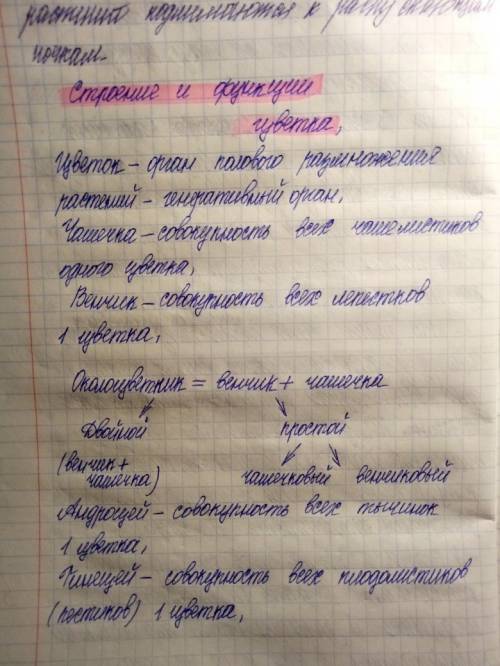 растений поднимаются к распускающим
почкам.
Строение и функции
цветка.
Цветок – орган полового размножения
растений – генеративный орган.
Чашечка – совокупность всех чашелистиков
одного цветка.
Венчик – совокупность всех лепестков
1 цветка.
Околоцветник = венчик + чашечка
Двойной простой
(венчик + чашечковый венчиковый
чашечка)
Андроцей – совокупность всех тычинок
1 цветка.
Гинецей – совокупность всех плодолистиков
(пестиков) 1 цветка.